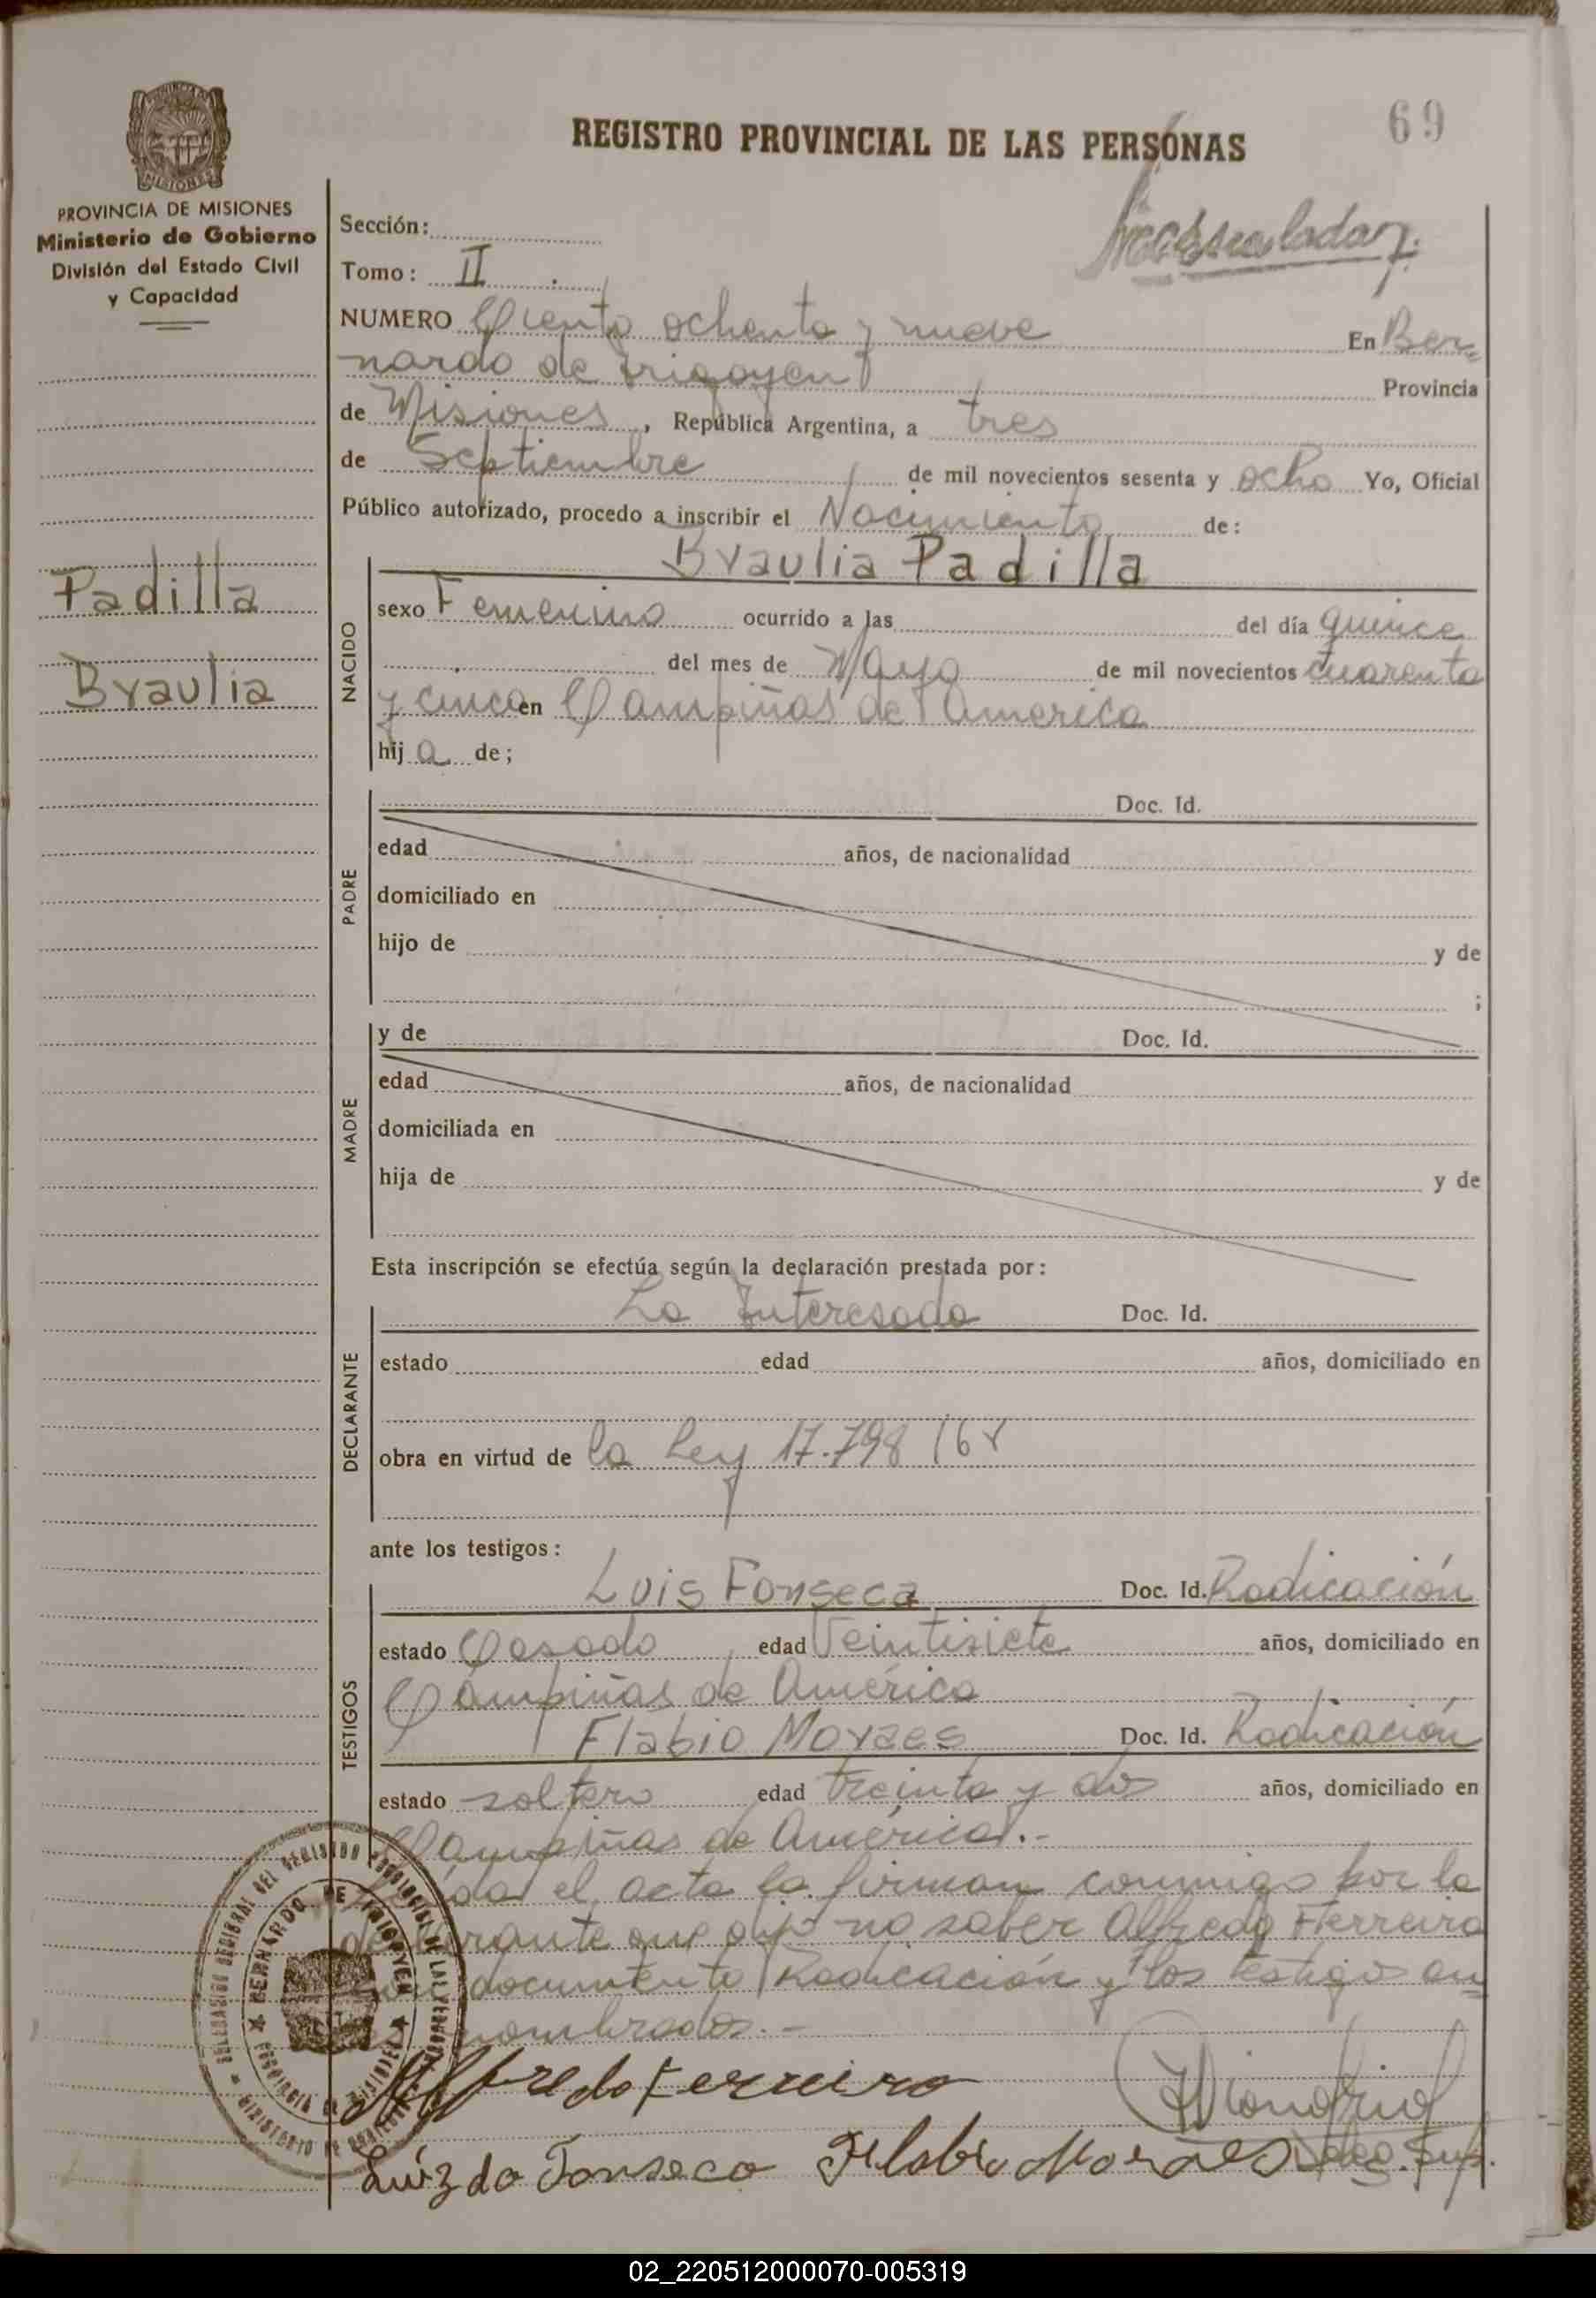 69
REGISTRO PROVINCIAL DE LAS PERSONAS
MISIONES
PROVINCIA DE MISIONES
Ministerio de Gobierno
División del Estado Civil
y Capacidad
Sección:
Tomo: II
NUMERO Ciento ochenta y nueve En Ber=
nardo de Irigoyen Provincia
de Misiones, República Argentina, a tres
de Septiembre de mil novecientos sesenta y ocho Yo, Oficial
Público autorizado, procedo a inscribir el Nacimiento de:
Padilla
Braulia
Braulia Padilla
NACIDO
sexo Femenino ocurrido a las del día quince
del mes de Mayo de mil novecientos cuarenta
y cinco en Campiñas de America
hij a de;
PADRE
Doc. Id.
edad años, de nacionalidad
domiciliado en
hijo de y de
;
MADRE
y de Doc. Id.
edad años, de nacionalidad
domiciliada en
hija de y de
Esta inscripción se efectúa según la declaración prestada por:
DECLARANTE
La Interesada Doc. Id.
estado edad años, domiciliado en
obra en virtud de la Ley 17.798/68
ante los testigos:
TESTIGOS
Luis Fonseca Doc. Id. Radicación
estado Casado edad Veintisiete años, domiciliado en
Campiñas de América
Flabio Moraes Doc. Id. Radicación
estado soltero edad treinta y dos años, domiciliado en
Campiñas de América.-
el acta la firman conmigo por la
declarante que dijo no saber Alfredo Ferreira
documento Radicación y los testigos an
nombrados.-
BERNARDO DE IRIGOYEN
PROVINCIA DE MISIONES
Alfredo Ferreira
Luiz da Fonseca Flabio Moraes
02_220512000070-005319